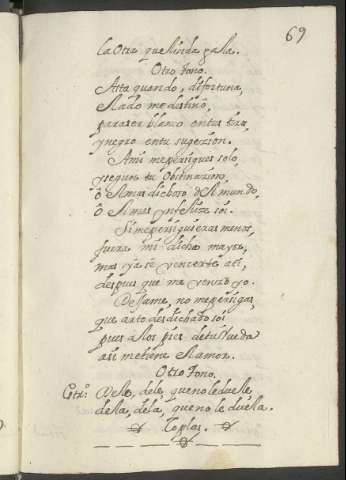 69
la otra que linda zalla.
Otro Tono.
Asta quando, disfortuna,
el ado me destinó,
para ser blanco en tus tiros,
y negro en tu sugecion.
A mi me persigues solo,
y segun tu obstinazion,
ô el mas dichoso del mundo,
ô el mas ynfelize soi.
Si me persiguieras menos,
fuera mi dicha mayor,
mas ya sè vencerte a ti,
despues que me venzo yo.
Dejame, no me persigas,
que arto desdichado soi
pues a los pies de tu rueda
asi me tiene el amor.
Otro Tono.
Dele, dele, que no le duele,
dela, dela, que no le duela.
Coplas.